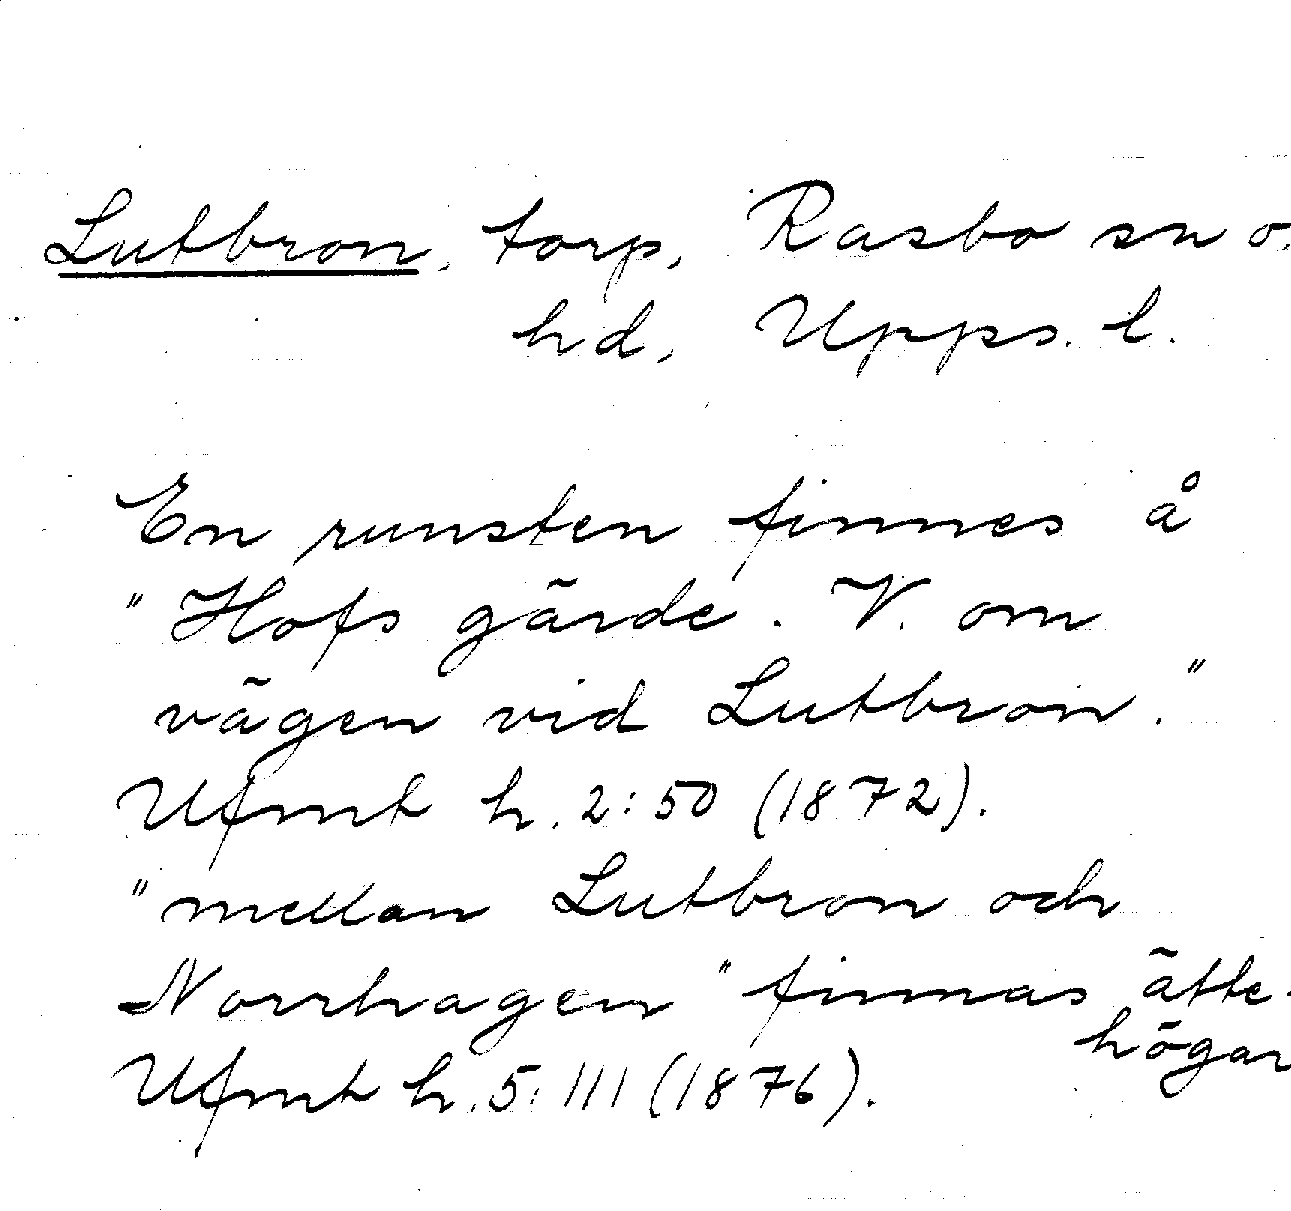 Lutbron, torp, Rasbo sn o.
hd, Upps. l.
En runsten finnes å
"Hofs gärde. V. om
vägen vid Lutbron."
Ufmt h. 2:50 (1872).
"mellan Lutbron och
Norrhagen" finnas ätte-
högar
Ufmt h. 5:111 (1876).